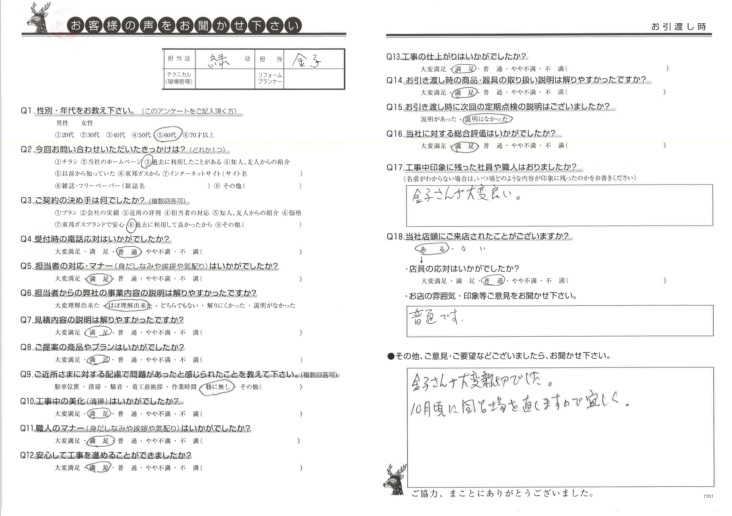 お客様の声をお聞かせ下さい
担当店 緑 店 担当 金子
テクニカル(現場管理) リフォームプランナー
Q1.性別・年代をお教え下さい。(このアンケートをご記入頂く方)
男性 女性
①20代 ②30代 ③40代 ④50代 ⑤60代 ⑥70才以上
Q2.今回お問い合わせいただいたきっかけは?(どれか1つ)
①チラシ ②当社のホームページ ③過去に利用したことがある ④知人、友人からの紹介
⑤以前から知っていた ⑥東邦ガスから ⑦インターネットサイト(サイト名 )
⑧雑誌・フリーペーパー(雑誌名 ) ⑨その他( )
Q3.ご契約の決め手は何でしたか?(複数回答可)
①プラン ②会社の実績 ③近所の評判 ④担当者の対応 ⑤知人、友人からの紹介 ⑥価格
⑦東邦ガスブランドで安心 ⑧過去に利用して良かったから ⑨その他( )
Q4.受付時の電話応対はいかがでしたか?
大変満足・満 足・普 通・やや不満・不 満( )
Q5.担当者の対応・マナー(身だしなみや挨拶や気配り)はいかがでしたか?
大変満足・満 足・普 通・やや不満・不 満( )
Q6.担当者からの弊社の事業内容の説明は解りやすかったですか?
大変理解出来た・ほぼ理解出来た・どちらでもない・解りにくかった・説明がなかった
Q7.見積内容の説明は解りやすかったですか?
大変満足・満 足・普 通・やや不満・不 満( )
Q8.ご提案の商品やプランはいかがでしたか?
大変満足・満 足・普 通・やや不満・不 満( )
Q9.ご近所さまに対する配慮で問題があったと感じられたことを教えて下さい。(複数回答可)
駐車位置・清掃・騒音・着工前挨拶・作業時間・特に無し・その他( )
Q10.工事中の美化(清掃)はいかがでしたか?
大変満足・満 足・普 通・やや不満・不 満( )
Q11.職人のマナー(身だしなみや挨拶や気配り)はいかがでしたか?
大変満足・満 足・普 通・やや不満・不 満( )
Q12.安心して工事を進めることができましたか?
大変満足・満 足・普 通・やや不満・不 満( )
お引渡し時
Q13.工事の仕上がりはいかがでしたか?
大変満足・満 足・普 通・やや不満・不 満( )
Q14.お引き渡し時の商品・器具の取り扱い説明は解りやすかったですか?
大変満足・満 足・普 通・やや不満・不 満( )
Q15.お引き渡し時に次回の定期点検の説明はございましたか?
説明があった・説明はなかった
Q16.当社に対する総合評価はいかがでしたか?
大変満足・満 足・普 通・やや不満・不 満( )
Q17.工事中印象に残った社員や職人はおりましたか?
(名前がわからない場合は、いつ頃どのような内容が印象に残ったのかをお書きください)
金子さんが大変良い。
Q18.当社店頭にご来店されたことがございますか?
あ る・な い
・店員の応対はいかがでしたか?
大変満足・満 足・普 通・やや不満・不 満( )
・お店の雰囲気・印象等ご意見をお聞かせ下さい。
普通です.
●その他、ご意見・ご要望などございましたら、お聞かせ下さい。
金子さんが大変親切でした。
10月頃に風呂場を直しますので宜しく。
ご協力、まことにありがとうございました。